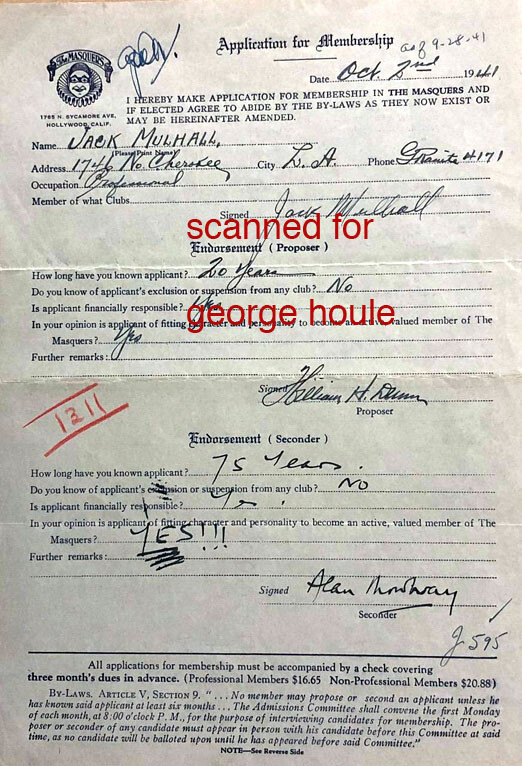 The MASQUERS
1765 N. SYCAMORE AVE.
HOLLYWOOD, CALIF.
Application for Membership as of 9-28-41
Date Oct. 2nd 1941
I HEREBY MAKE APPLICATION FOR MEMBERSHIP IN THE MASQUERS AND
IF ELECTED AGREE TO ABIDE BY THE BY-LAWS AS THEY NOW EXIST OR
MAY BE HEREINAFTER AMENDED.
Name JACK MULHALL.
(Please Print Name)
Address 1746 No. Cherokee City L.A. Phone GRanite 4171
Occupation Professional
Member of what Clubs
Signed Jack Mulhall
scanned for
Endorsement (Proposer)
How long have you known applicant? 20 Years
Do you know of applicant's exclusion or suspension from any club? No
Is applicant financially responsible? Yes
george houle
In your opinion is applicant of fitting character and personality to become an active, valued member of The
Masquers? Yes
Further remarks:
Signed William H.
Proposer
1311
Endorsement (Seconder)
How long have you known applicant? 75 Years.
Do you know of applicant's exclusion or suspension from any club? NO
Is applicant financially responsible? Yes.
In your opinion is applicant of fitting character and personality to become an active, valued member of The
Masquers? YES!!!
Further remarks:
Signed Alan Mowbray
Seconder
J-595
All applications for membership must be accompanied by a check covering
three month's dues in advance. (Professional Members $16.65 Non-Professional Members $20.88)
BY-LAWS. ARTICLE V, SECTION 9. "...No member may propose or second an applicant unless he
has known said applicant at least six months ... The Admissions Committee shall convene the first Monday
of each month, at 8:00 o'clock P. M., for the purpose of interviewing candidates for membership. The pro-
poser or seconder of any candidate must appear in person with his candidate before this Committee at said
time, as no candidate will be balloted upon until he has appeared before said Committee."
NOTE—See Reverse Side